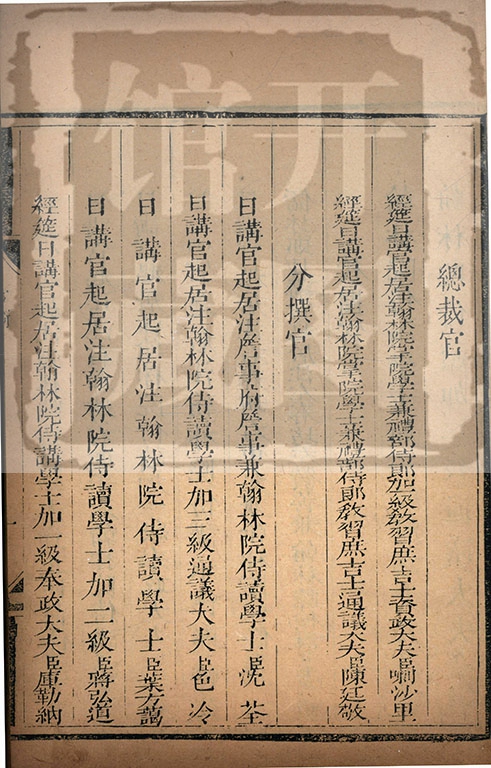 總裁官
經筵日講官起居注翰林院掌院學士兼禮部侍郎加一級教習庶吉士資政大夫臣喇沙里
經筵日講官起居注翰林院掌院學士兼禮部侍郎教習庶吉士通議大夫臣陳廷敬
分撰官
日講官起居注詹事府詹事兼翰林院侍讀學士臣沈荃
日講官起居注翰林院侍讀學士加三級通議大夫臣色冷
日講官起居注翰林院侍讀學士臣葉方藹
日講官起居注翰林院侍讀學士加二級臣蔣弘道
經筵日講官起居注翰林院侍講學士加一級奉政大夫臣庫勒納